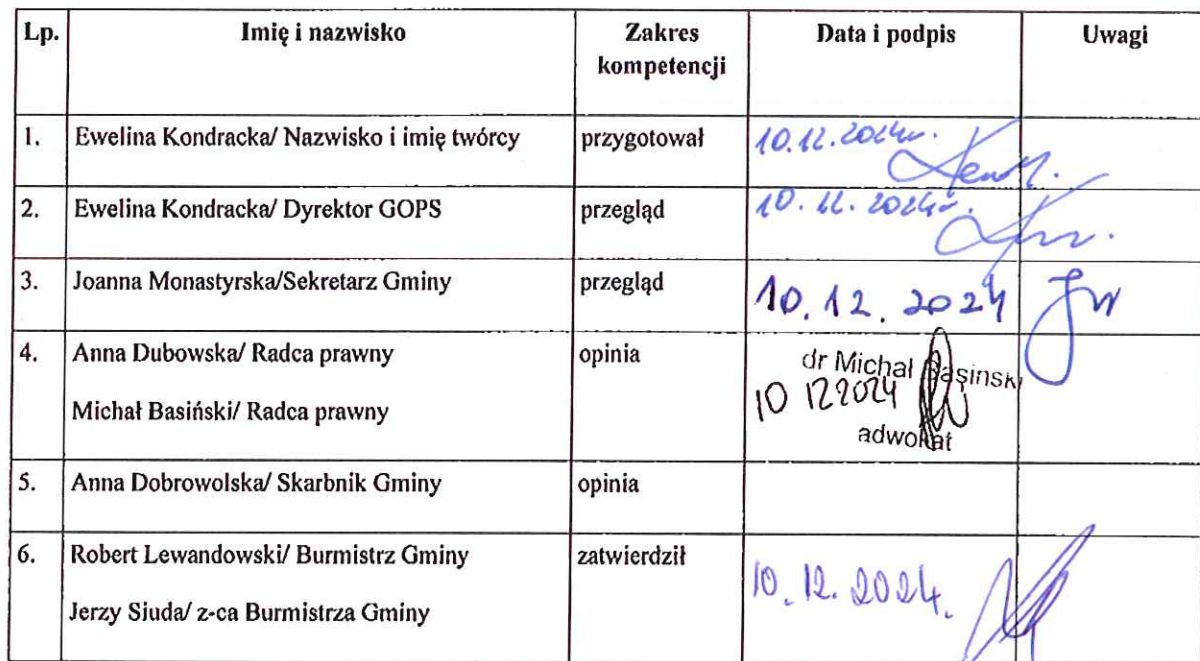 Lp. Imię i nazwisko Zakres kompetencji Data i podpis Uwagi
1. Ewelina Kondracka/ Nazwisko i imię twórcy przygotował 10.12.2024r.
2. Ewelina Kondracka/ Dyrektor GOPS przegląd 10.12.2024r.
3. Joanna Monastyrska/Sekretarz Gminy przegląd 10.12.2024
4. Anna Dubowska/ Radca prawny opinia dr Michał Basiński
Michał Basiński/ Radca prawny 10 12 2024
adwokat
5. Anna Dobrowolska/ Skarbnik Gminy opinia
6. Robert Lewandowski/ Burmistrz Gminy zatwierdził
10.12.2024.
Jerzy Siuda/ z-ca Burmistrza Gminy